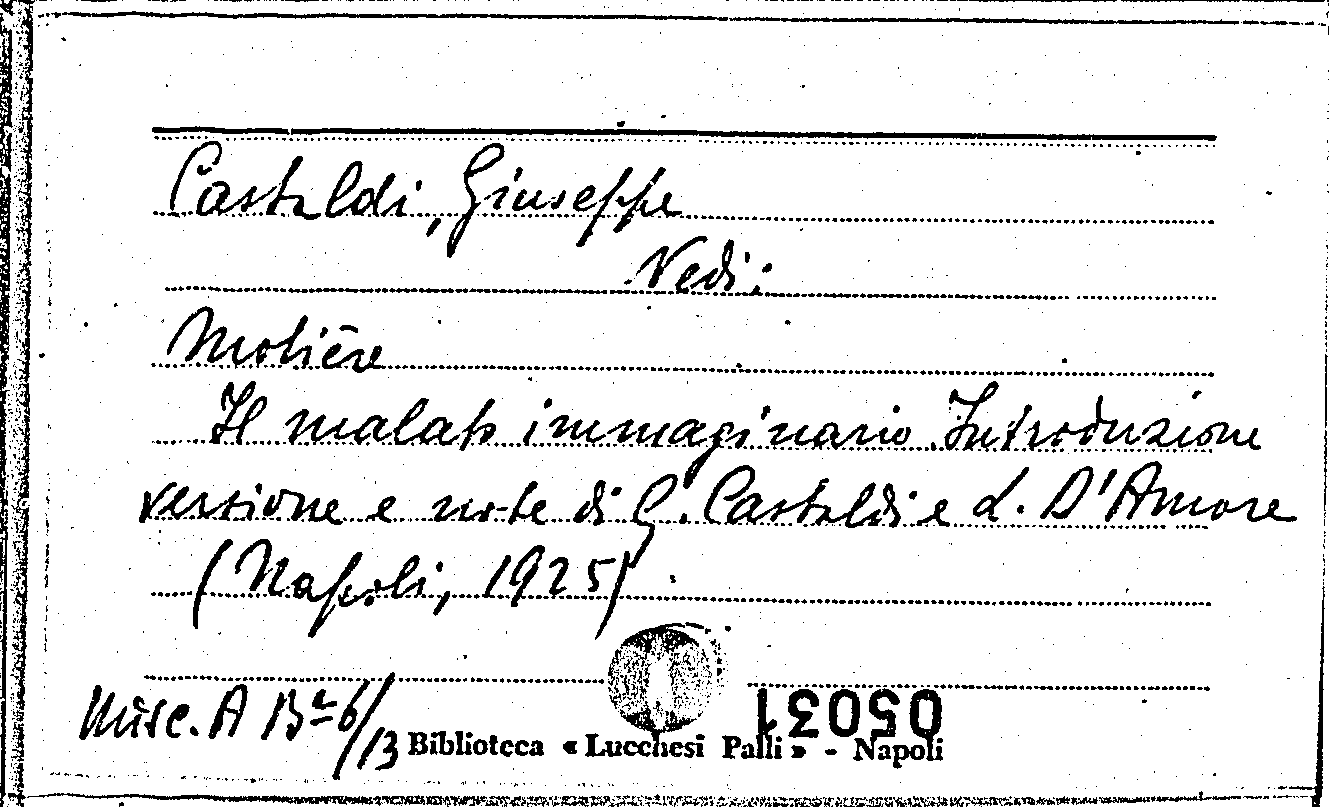 Castaldi, Giuseppe
Vedi:
Molière
Il malato immaginario. Introduzione
versione e note di G. Castaldi e L. D'Amore
(Napoli, 1925)
Misc. A Bª 6/13
05031
Biblioteca « Lucchesi Palli » - Napoli